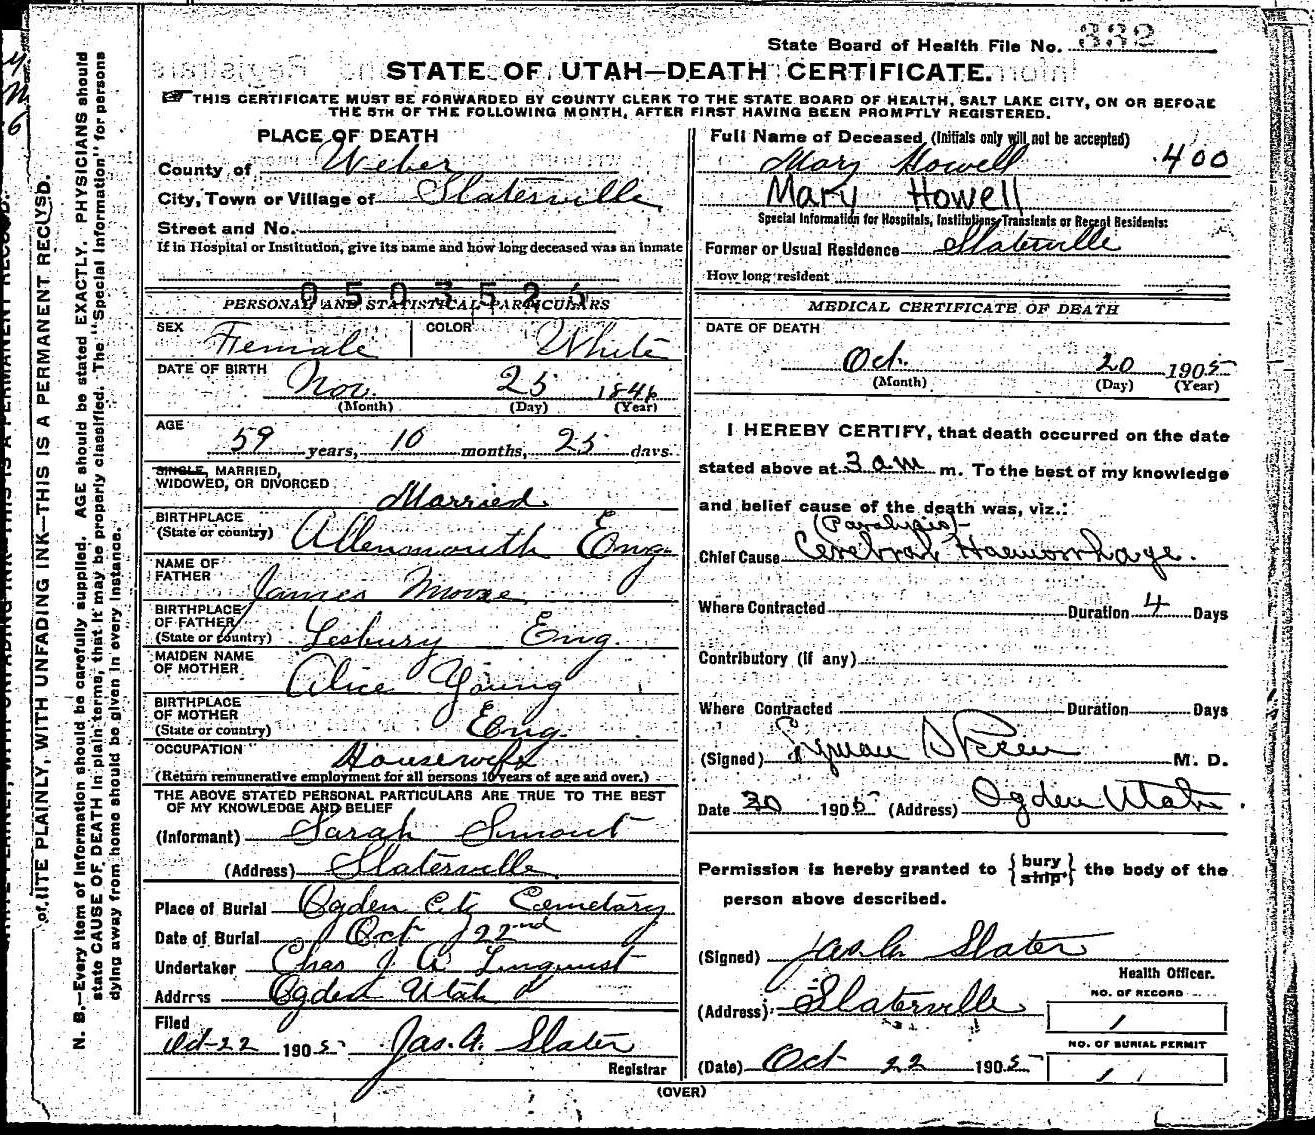 State Board of Health File No. 332
STATE OF UTAH—DEATH CERTIFICATE.
THIS CERTIFICATE MUST BE FORWARDED BY COUNTY CLERK TO THE STATE BOARD OF HEALTH, SALT LAKE CITY, ON OR BEFORE
THE 5TH OF THE FOLLOWING MONTH, AFTER FIRST HAVING BEEN PROMPTLY REGISTERED.
PLACE OF DEATH
County of Weber
City, Town or Village of Slaterville
Street and No.
If in Hospital or Institution, give its name and how long deceased was an inmate
0503525
PERSONAL AND STATISTICAL PARTICULARS
SEX Female COLOR White
DATE OF BIRTH Nov. 25 1846
(Month) (Day) (Year)
AGE 59 years, 10 months, 25 days.
SINGLE, MARRIED,
WIDOWED, OR DIVORCED Married
BIRTHPLACE
(State or country) Allensmouth Eng.
NAME OF
FATHER James Moore
BIRTHPLACE
OF FATHER
(State or country) Lesbury Eng.
MAIDEN NAME
OF MOTHER Alice Young
BIRTHPLACE
OF MOTHER
(State or country) Eng.
OCCUPATION Housewife
(Return remunerative employment for all persons 10 years of age and over.)
THE ABOVE STATED PERSONAL PARTICULARS ARE TRUE TO THE BEST
OF MY KNOWLEDGE AND BELIEF
(Informant) Sarah Smout
(Address) Slaterville
Place of Burial Ogden City Cemetary
Date of Burial Oct 22nd
Undertaker Chas J A Linquist
Address Ogden Utah
Filed
Oct-22 1905 Jas. A. Slater
Registrar
Full Name of Deceased (Initials only will not be accepted)
Mary Howell .400
Mary Howell
Special Information for Hospitals, Institutions, Transients or Recent Residents:
Former or Usual Residence Slaterville
How long resident
MEDICAL CERTIFICATE OF DEATH
DATE OF DEATH
Oct. 20 1905
(Month) (Day) (Year)
I HEREBY CERTIFY, that death occurred on the date
stated above at 3 am m. To the best of my knowledge
and belief cause of the death was, viz.:
(Paralysis)
Chief Cause Cerebral Haemorrhage.
Where Contracted Duration 4 Days
Contributory (if any)
Where Contracted Duration Days
(Signed) Lyman M. D.
Date 20 1905 (Address) Ogden Utah.
Permission is hereby granted to {bury
ship} the body of the
person above described.
(Signed) Jas. A. Slater
Health Officer.
(Address) Slaterville
NO. OF RECORD
1
(Date) Oct 22 1905
NO. OF BURIAL PERMIT
1
(OVER)
N. B.—Every item of information should be carefully supplied. AGE should be stated EXACTLY. PHYSICIANS should
state CAUSE OF DEATH in plain terms, that it may be properly classified. The "Special Information" for persons
dying away from home should be given in every instance.
PLAINLY, WITH UNFADING INK—THIS IS A PERMANENT RECORD.